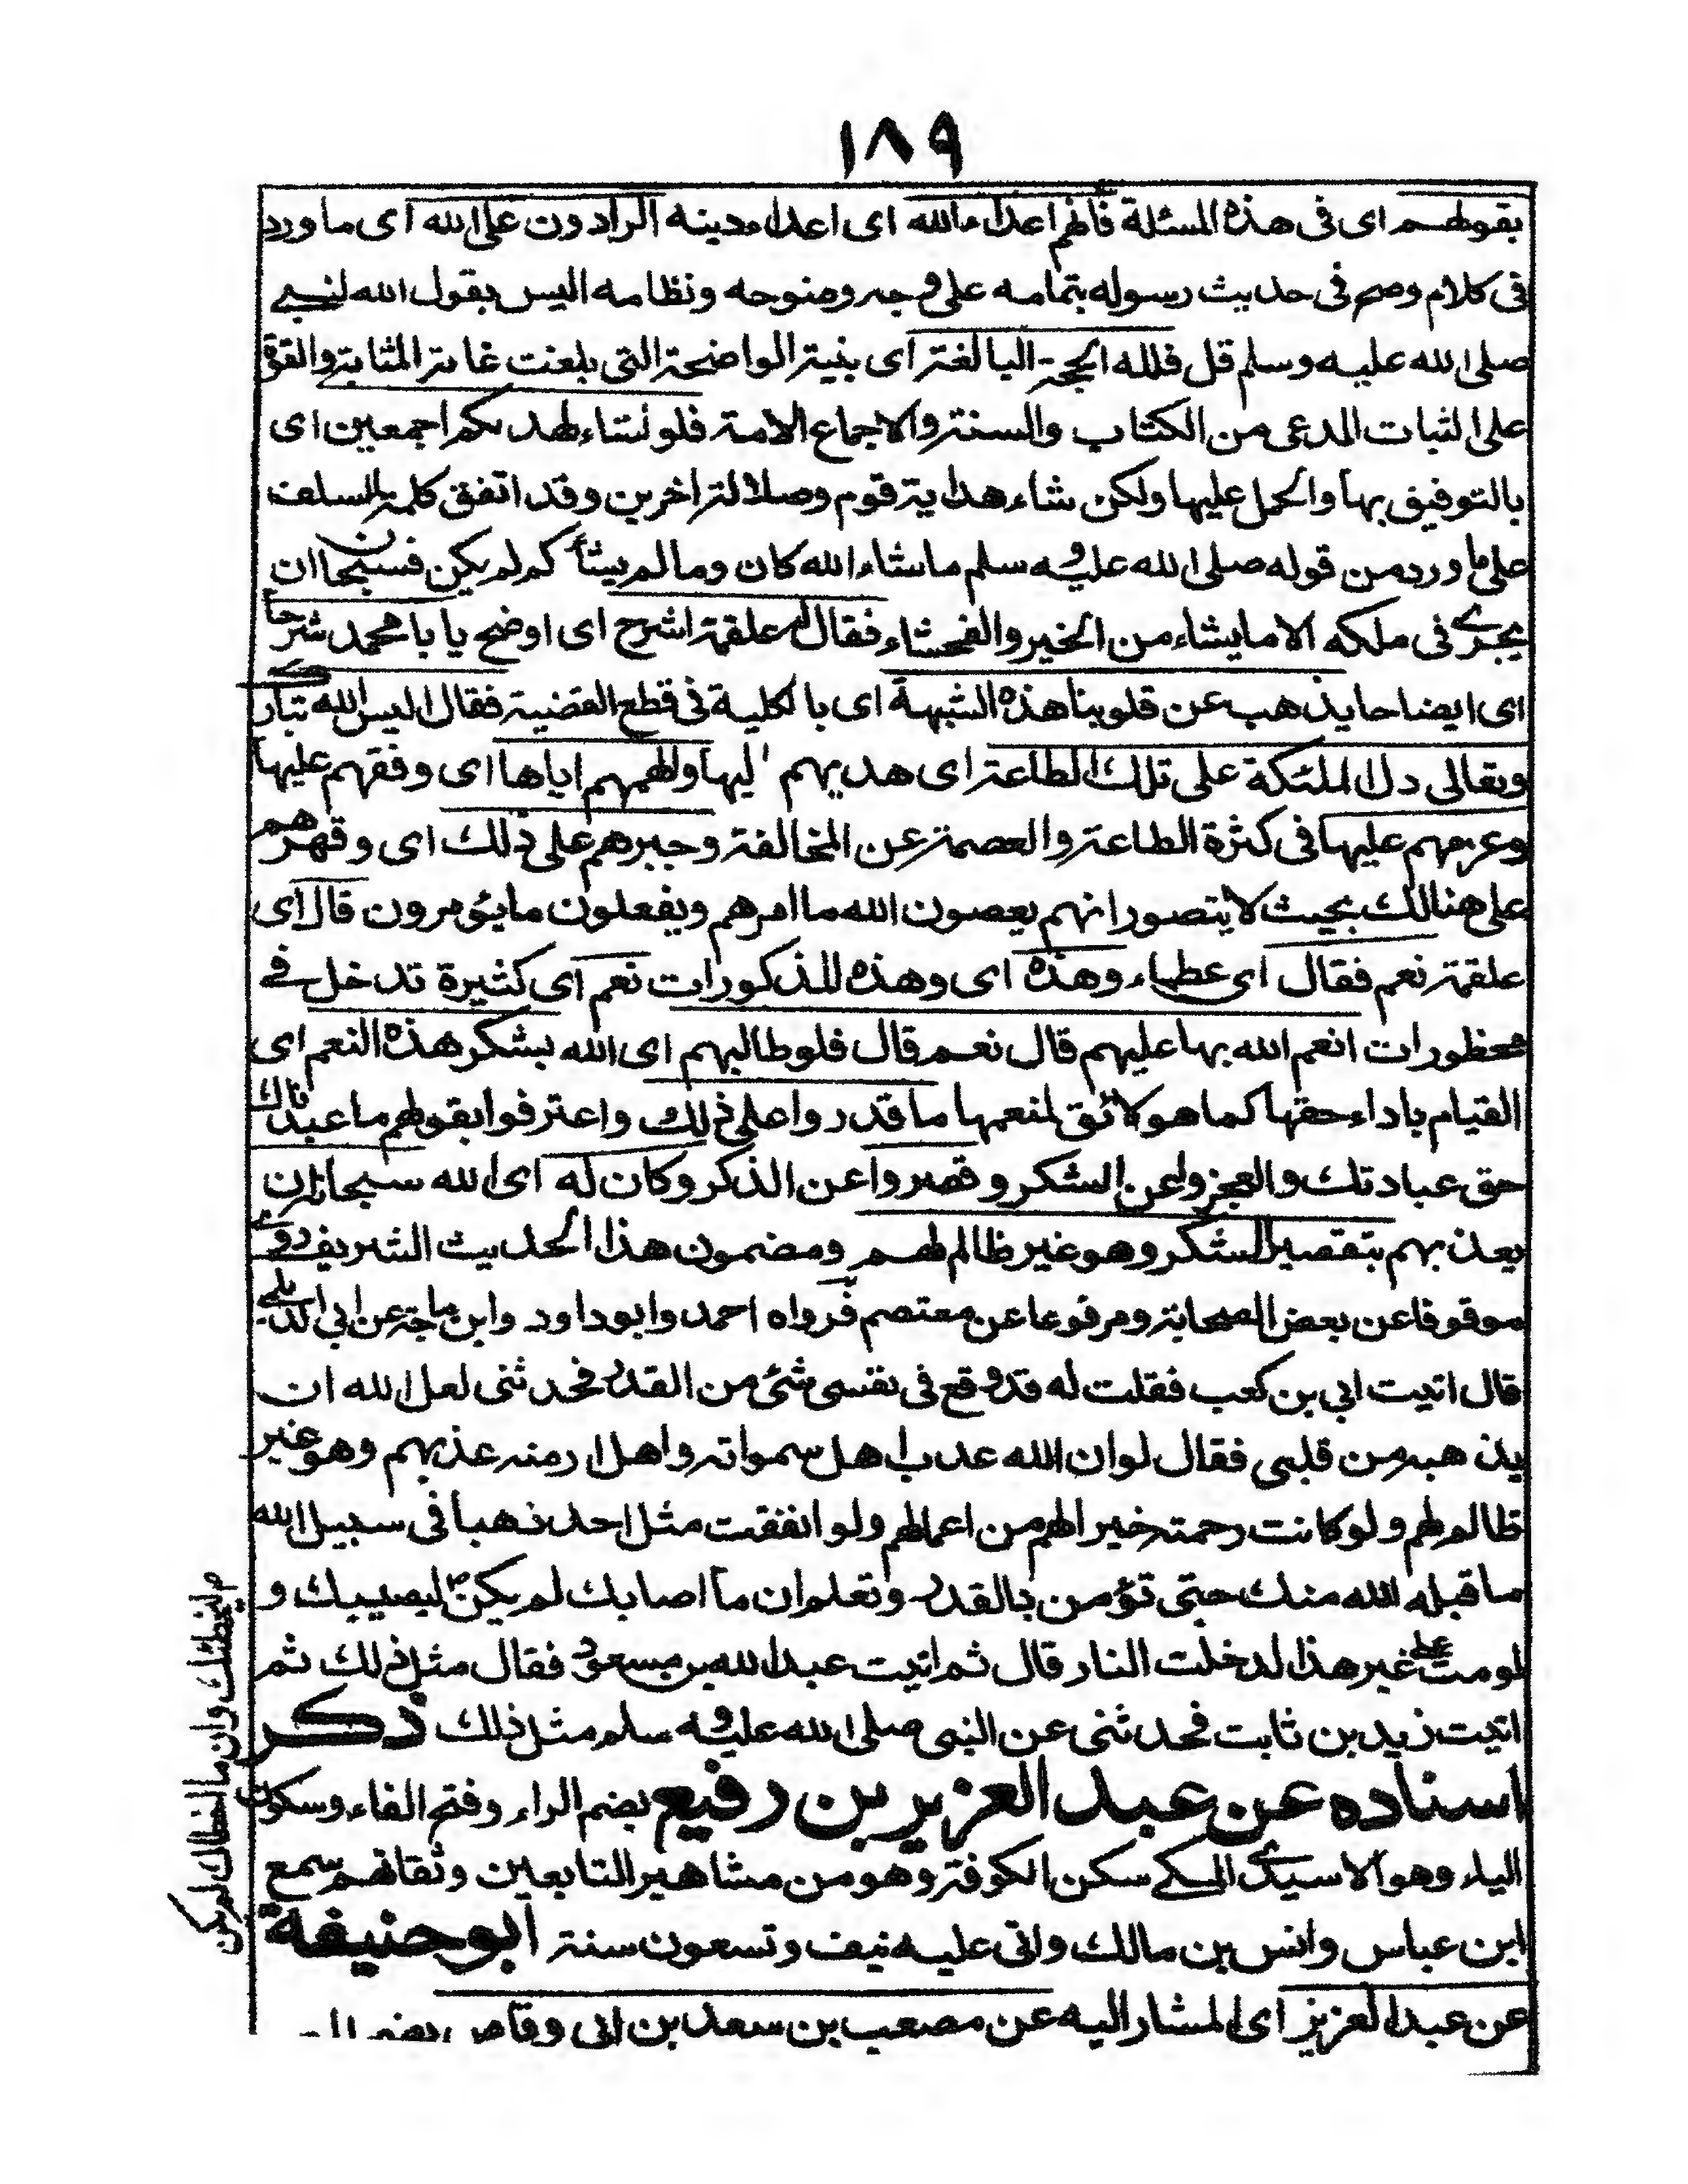 ١٨٩
بقولهم اى فى هذه المسئلة فانهم اعداء الله اى اعداء دينه الرادون على الله اى ما ورد
فى كلام وصح فى حديث رسوله بتمامه على وجه ومنوحه ونظامه اليس يقول الله لنبيه
صلى الله عليه وسلم قل فلله الحجة البالغة اى بنية الواضحة التى بلغت غاية المثابة والقوة
على اثبات المدعى من الكتاب والسنة والاجماع الامة فلو شاء لهدىكم اجمعين اى
بالتوفيق بها والحمل عليها ولكن شاء هداية قوم وضلالة اخرين وقد اتفق كلمة السلف
على ما ورد من قوله صلى الله عليه وسلم ما شاء الله كان وما لم يشأ لم يكن فسبحان ان
يجرى فى ملكه الا ما يشاء من الخير والفحشاء فقال له علقمة اشرح اى اوضح يا با محمد شرحا
اى ايضاحا يذهب عن قلوبنا هذه الشبهة اى بالكلية فى قطع القضية فقال اليس الله تبارك
وتعالى دل الملئكة على تلك الطاعة اى هديهم اليها والهمهم اياها اى وفقهم عليها
وعزمهم عليها فى كثرة الطاعة والعصمة عن المخالفة وجبرهم على ذلك اى وقهرهم
على هنالك بحيث لا يتصور انهم يعصون الله ما امرهم ويفعلون ما يئومرون قال اى
علقمة نعم فقال اى عطاء وهذه اى وهذه المذكورات نعم اى كثيرة تدخل فى
محظورات انعم الله بها عليهم قال نعم قال فلو طالبهم اى الله بشكر هذه النعم اى
القيام باداء حقها كما هو لائق لمنعمها ما قدروا على ذلك واعترفوا بقولهم ما عبدناك
حق عبادتك والعجزوا عن الشكر وقصروا عن الذكر وكان له اى الله سبحانه ان
يعذبهم بتقصير الشكر وهو غير ظالم لهم ومضمون هذا الحديث الشريف روى
موقوفا عن بعض الصحابة ومرفوعا عن معتصم فرواه احمد وابو داود وابن ماجة عن ابى الديلمى
قال اتيت ابي بن كعب فقلت له قد وقع فى نفسى شئ من القدر فحدثنى لعل الله ان
يذهبه من قلبى فقال لو ان الله عذب اهل سمواته واهل ارضه عذبهم وهو غير
ظالم لهم ولو كانت رحمته خيرا لهم من اعمالهم ولو انفقت مثل احد ذهبا فى سبيل الله
ما قبله الله منك حتى تؤمن بالقدر وتعلم ان ما اصابك لم يكن ليصيبك و
لو مت على غير هذا لدخلت النار قال ثم اتيت عبد الله بن مسعود فقال مثل ذلك ثم
اتيت زيد بن ثابت فحدثنى عن النبى صلى الله عليه وسلم مثل ذلك ذكر
اسناده عن عبد العزيز بن رفيع بضم الراء وفتح الفاء وسكون
الياء وهو الاسيدى المكى سكن الكوفة وهو من مشاهير التابعين وثقاتهم سمع
ابن عباس وانس بن مالك واتى عليه نيف وتسعون سنة ابو حنيفة
عن عبد العزيز اى المشار اليه عن مصعب بن سعد بن ابى وقاص
م ليخطئك وان ما اخطاك لم يكن